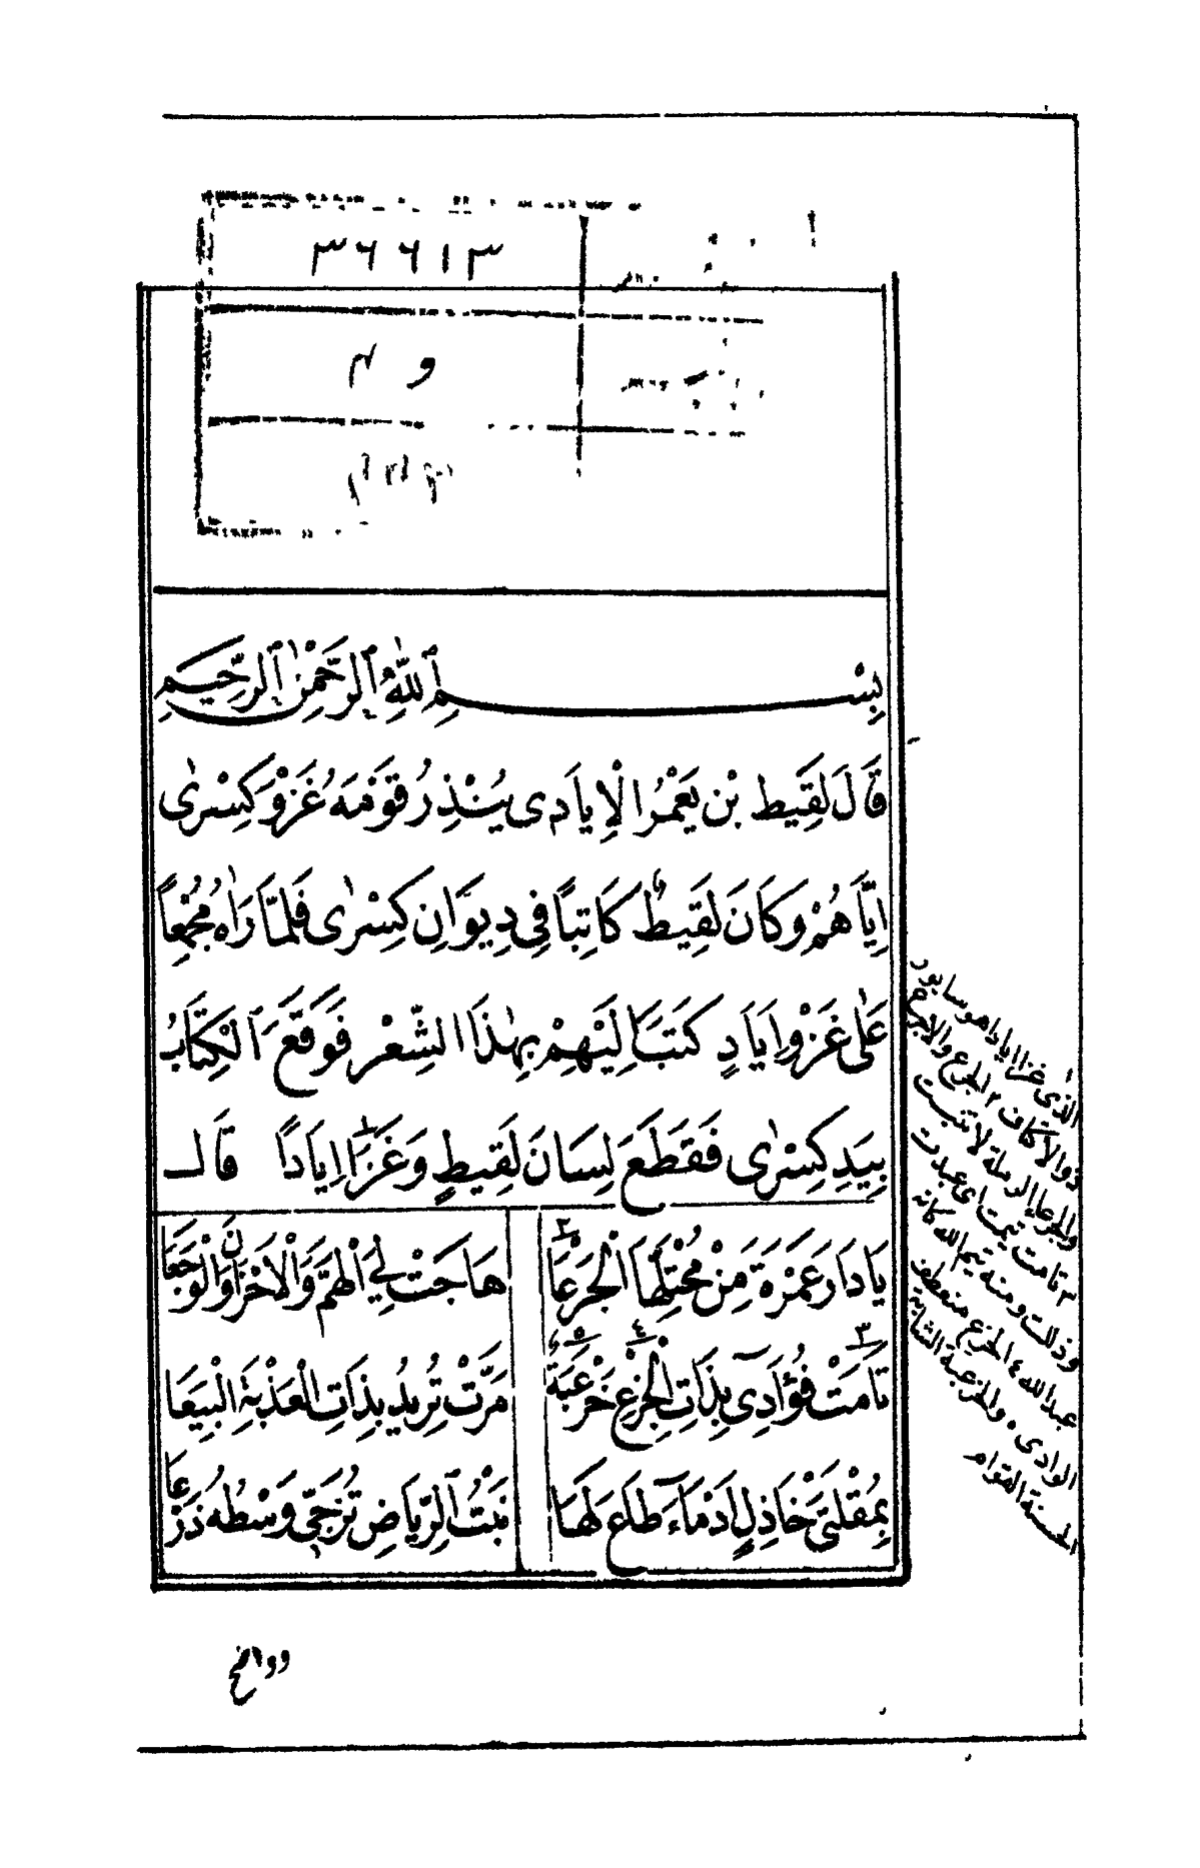 ٣٦٦١٣
بِسْمِ ٱللّٰهِ ٱلرَّحْمٰنِ ٱلرَّحِيمِ
قَالَ لَقِيط بْن يَعْمُر الْإِيَادِى يُنْذِرُ قَوْمَهُ غَزْوَ كِسْرٰى
اِيَّاهُمْ وَكَانَ لَقِيطٌ كَاتِبًا فِى دِيوَانِ كِسْرٰى فَلَمَّا رَاٰهُ مُجْمِعًا
عَلٰى غَزْوِ اِيَادٍ كَتَبَ اِلَيْهِمْ بِهٰذَا الشِّعْرِ فَوَقَعَ ٱلْكِتَابُ
بِيَدِ كِسْرٰى فَقَطَعَ لِسَانَ لَقِيطٍ وَغَزَا ١ اِيَادًا قَالَ
يَا دَارَ عَمْرَةَ مِنْ مُحْتَلِّهَا الْجَرَعَا ٢ هَاجَتْ لِيَ الْهَمَّ وَالْاَحْزَانَ وَالْوَجَعَا
تَامَتْ ٣ فُؤَادِى بِذَاتِ الْجِزْعِ ٤ خَرْعَبَةٌ ٥ مَرَّتْ تُرِيدُ بِذَاتِ الْعَذْبَةِ الْبِيَعَا
بِمُقْلَتَىْ خَاذِلٍ اَدْمَاءَ طَاعَ لَهَا نَبْتُ ٱلرِّيَاضِ تُزَجِّى وَسْطَهُ ذَرَعَا
١ الذى غزا ايادا هو سابور
ذو الاكتاف ٢ الجرع والاجرع
والجرعا الرملة لا تنبت
٣ تامت تيمت اى عبدت
وذللت ومنه تيم الله كانه
عبد الله ٤ الجزع منعطف
الوادى ٥ والخرعبة الشابة
الحسنة القوام